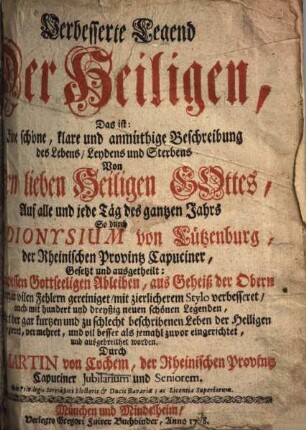 Verbesserte Legend
Der Heiligen,
Das ist:
schöne, klare und anmüthige Beschreibung
des Lebens/ Leydens und Sterbens
Von
lieben Heiligen GOttes,
Auf alle und jede Täg des gantzen Jahrs
So durch
DIONYSIUM von Lützenburg,
der Rheinischen Provintz Capuciner,
Gesetzt und ausgetheilt:
Gottseeligen Ableiben, aus Geheiß der Obern
vilen Fehlern gereiniget/ mit zierlicherem Stylo verbesseret/
auch mit hundert und dreyßig neuen schönen Legenden,
gar kurtzen und zu schlecht beschribenen Leben der Heiligen
vermehret, und vil besser als jemahl zuvor eingerichtet,
und ausgebreithet worden.
Durch
MARTIN von Cochem, der Rheinischen Provintz
Capuciner Jubilarium und Seniorem.
Electoris & Ducis Bavariæ; ac Licentia Superiorum.
München und Mindelheim/
Verlegts Gregori Zuirer Buchbinder, Anno